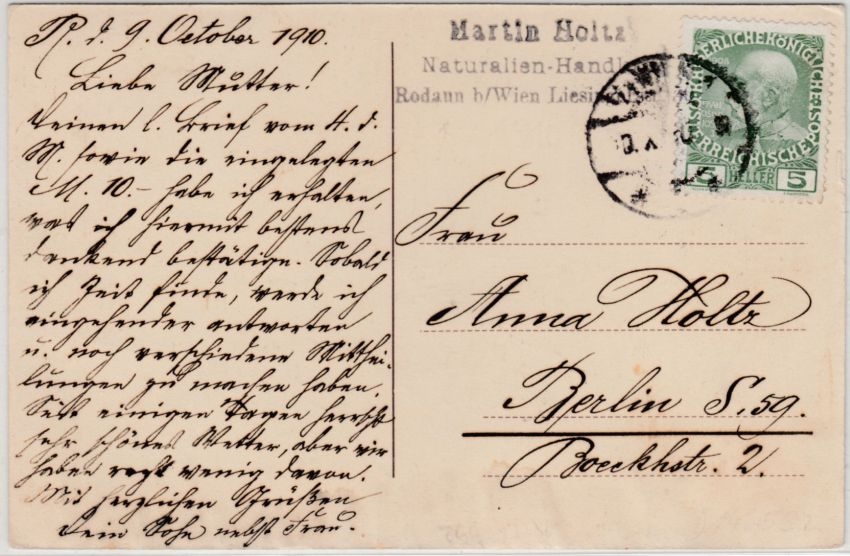 R. d. 9. October 1910.
Liebe Mutter!
Deinen l. Brief vom 4. d.
M. sowie die eingelegten
M. 10.- habe ich erhalten,
was ich hiermit bestens
dankend bestätige. Sobald
ich Zeit finde, werde ich
eingehender antworten
u. noch verschiedene Mitthei-
lungen zu machen haben.
Seit einigen Tagen herrscht
sehr schönes Wetter, aber wir
haben recht wenig davon.
Mit herzlichen Grüßen
Dein Sohn nebst Frau.
Martin Holtz
Naturalien-Handl
Rodaun b/Wien Liesin
5 HELLER 5
Frau
Anna Holtz
Berlin S. 59.
Boeckhstr. 2.